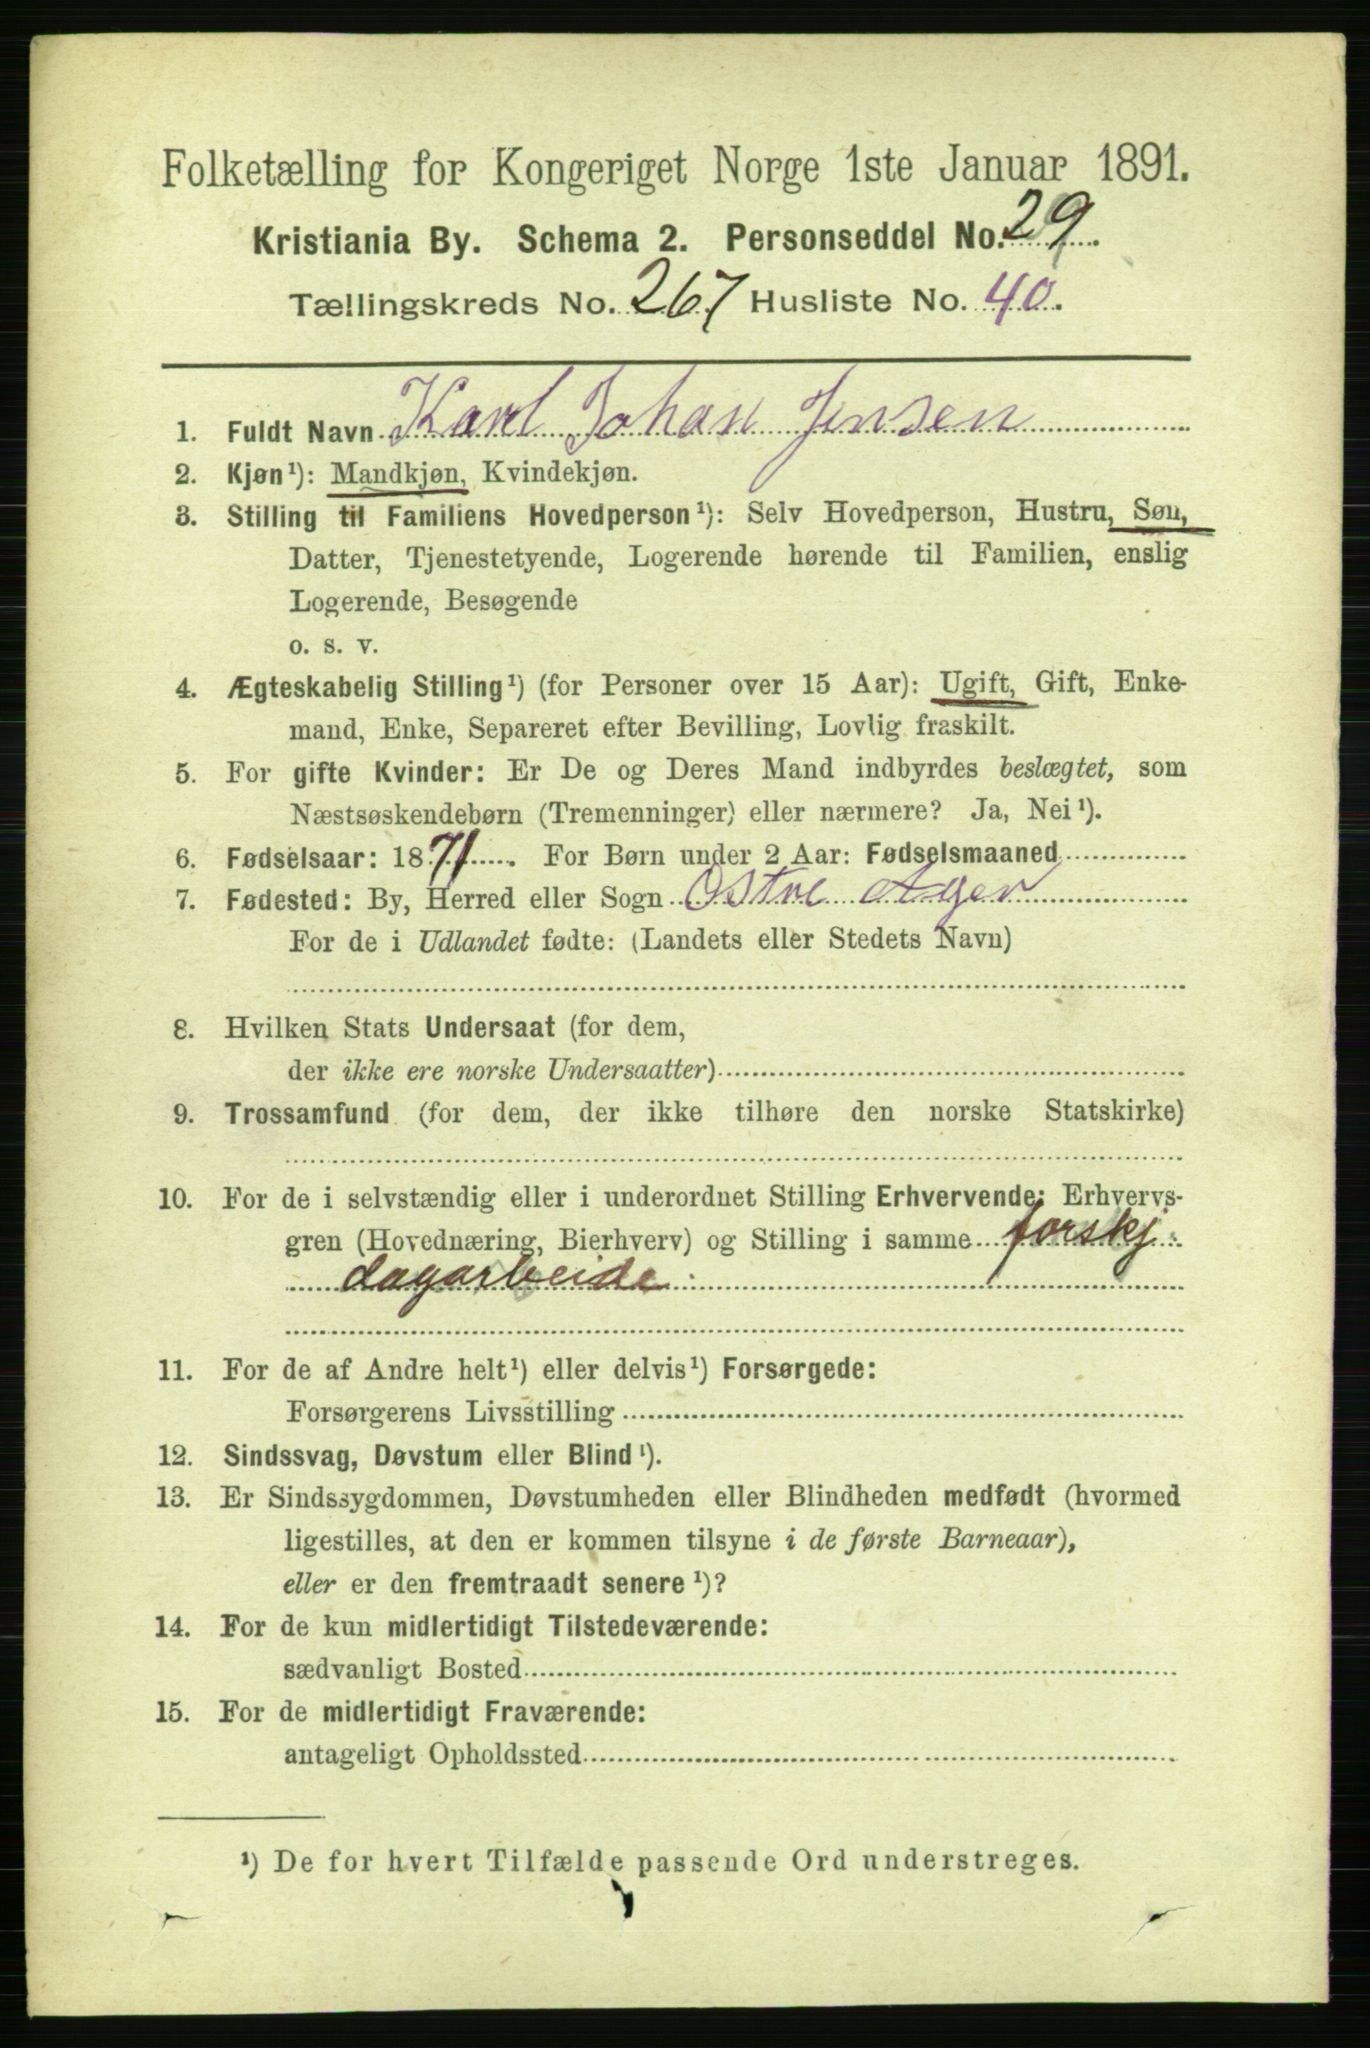 Folketælling for Kongeriget Norge 1ste Januar 1891.
Kristiania By. Schema 2. Personseddel No. 29.
Tællingskreds No. 267 Husliste No. 40.
1. Fuldt Navn Karl Johan Jensen
2. Kjøn¹): Mandkjøn, Kvindekjøn.
3. Stilling til Familiens Hovedperson¹): Selv Hovedperson, Hustru, Søn,
Datter, Tjenestetyende, Logerende hørende til Familien, enslig
Logerende, Besøgende
o. s. v.
4. Ægteskabelig Stilling¹) (for Personer over 15 Aar): Ugift, Gift, Enke-
mand, Enke, Separeret efter Bevilling, Lovlig fraskilt.
5. For gifte Kvinder: Er De og Deres Mand indbyrdes beslægtet, som
Næstsøskendebørn (Tremenninger) eller nærmere? Ja, Nei¹).
6. Fødselsaar: 1871. For Børn under 2 Aar: Fødselsmaaned
7. Fødested: By, Herred eller Sogn Østre Ager
For de i Udlandet fødte: (Landets eller Stedets Navn)
8. Hvilken Stats Undersaat (for dem,
der ikke ere norske Undersaatter)
9. Trossamfund (for dem, der ikke tilhøre den norske Statskirke)
10. For de i selvstændig eller i underordnet Stilling Erhvervende: Erhvervs-
gren (Hovednæring, Bierhverv) og Stilling i samme forskj
dagarbeide
11. For de af Andre helt¹) eller delvis¹) Forsørgede:
Forsørgerens Livsstilling
12. Sindssvag, Døvstum eller Blind¹).
13. Er Sindssygdommen, Døvstumheden eller Blindheden medfødt (hvormed
ligestilles, at den er kommen tilsyne i de første Barneaar),
eller er den fremtraadt senere¹)?
14. For de kun midlertidigt Tilstedeværende:
sædvanligt Bosted
15. For de midlertidigt Fraværende:
antageligt Opholdssted
¹) De for hvert Tilfælde passende Ord understreges.